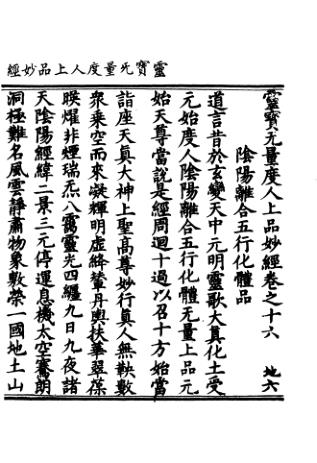 靈寶无量度人上品妙經
靈寶无量度人上品妙經卷之十六 地六
陰陽離合五行化體品
道言昔於玄變天中元明靈歌大真化土受
元始度人陰陽離合五行化體无量上品元
始天尊當說是經周迴十過以召十方始當
詣座天真大神上聖高尊妙行真人無鞅數
衆乘空而來凝輝明虛絳輦丹輿扶華翠葆
暎耀非煙瑞炁八靄靈光四纏九日九夜諸
天陰陽經緯二景三元停運息機太空騫朗
洞極難名風雲靜肅物象敷榮一國地土山